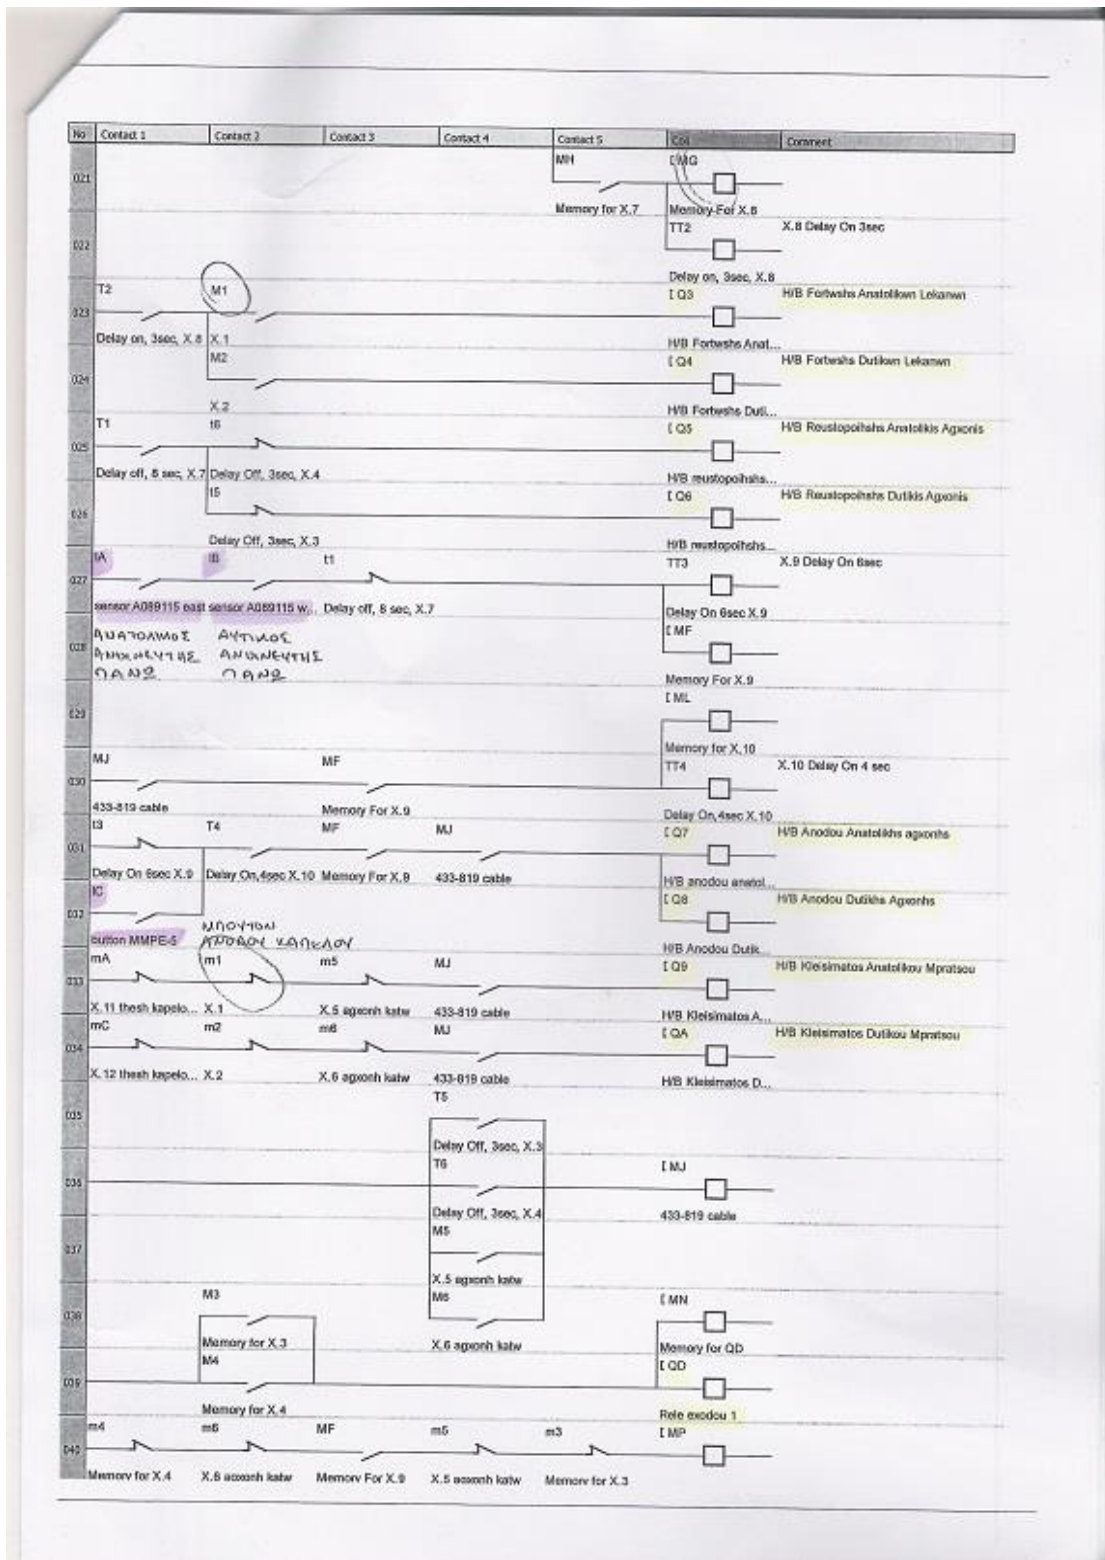 No Contact 1 Contact 2 Contact 3 Contact 4 Contact 5 Coil Comment
MH [ MG
021
Memory for X.7 Memory For X.8
TT2 X.8 Delay On 3sec
022
Delay on, 3sec, X.8
T2 M1 [ Q3 H/B Fortwshs Anatolikwn Lekanwn
023
Delay on, 3sec, X.8 X.1 H/B Fortwshs Anat...
M2 [ Q4 H/B Fortwshs Dutikwn Lekanwn
024
X.2 H/B Fortwshs Duti...
T1 t6 [ Q5 H/B Reustopoihshs Anatolikis Agxonis
025
Delay off, 8 sec, X.7 Delay Off, 3sec, X.4 H/B reustopoihshs...
t5 [ Q6 H/B Reustopoihshs Dutikis Agxonis
026
Delay Off, 3sec, X.3 H/B reustopoihshs...
IA IB t1 TT3 X.9 Delay On 6sec
027
sensor A089115 east sensor A089115 w... Delay off, 8 sec, X.7 Delay On 6sec X.9
ΑΝΑΤΟΛΙΚΟΣ ΔΥΤΙΚΟΣ [ MF
028 ΑΝΙΧΝΕΥΤΗΣ ΑΝΙΧΝΕΥΤΗΣ
ΠΑΝΩ ΠΑΝΩ Memory For X.9
[ ML
029
Memory for X.10
MJ MF TT4 X.10 Delay On 4 sec
030
433-819 cable Memory For X.9 Delay On,4sec X.10
t3 T4 MF MJ [ Q7 H/B Anodou Anatolikhs agxonhs
031
Delay On 6sec X.9 Delay On,4sec X.10 Memory For X.9 433-819 cable H/B anodou anatol...
IC [ Q8 H/B Anodou Dutikhs Agxonhs
032
ΜΠΟΥΤΟΝ
button MMPE-5 ΑΝΟΔΟΥ ΚΑΠΕΛΟΥ H/B Anodou Dutik...
mA m1 m5 MJ [ Q9 H/B Kleisimatos Anatolikou Mpratsou
033
X.11 thesh kapelo... X.1 X.5 agxonh katw 433-819 cable H/B Kleisimatos A...
mC m2 m6 MJ [ QA H/B Kleisimatos Dutikou Mpratsou
034
X.12 thesh kapelo... X.2 X.6 agxonh katw 433-819 cable H/B Kleisimatos D...
T5
035
Delay Off, 3sec, X.3
T6 [ MJ
036
Delay Off, 3sec, X.4 433-819 cable
M5
037
X.5 agxonh katw
M3 M6 [ MN
038
Memory for X.3 X.6 agxonh katw Memory for QD
M4 [ QD
039
Memory for X.4 Rele exodou 1
m4 m6 MF m5 m3 [ MP
040
Memory for X.4 X.6 agxonh katw Memory For X.9 X.5 agxonh katw Memory for X.3